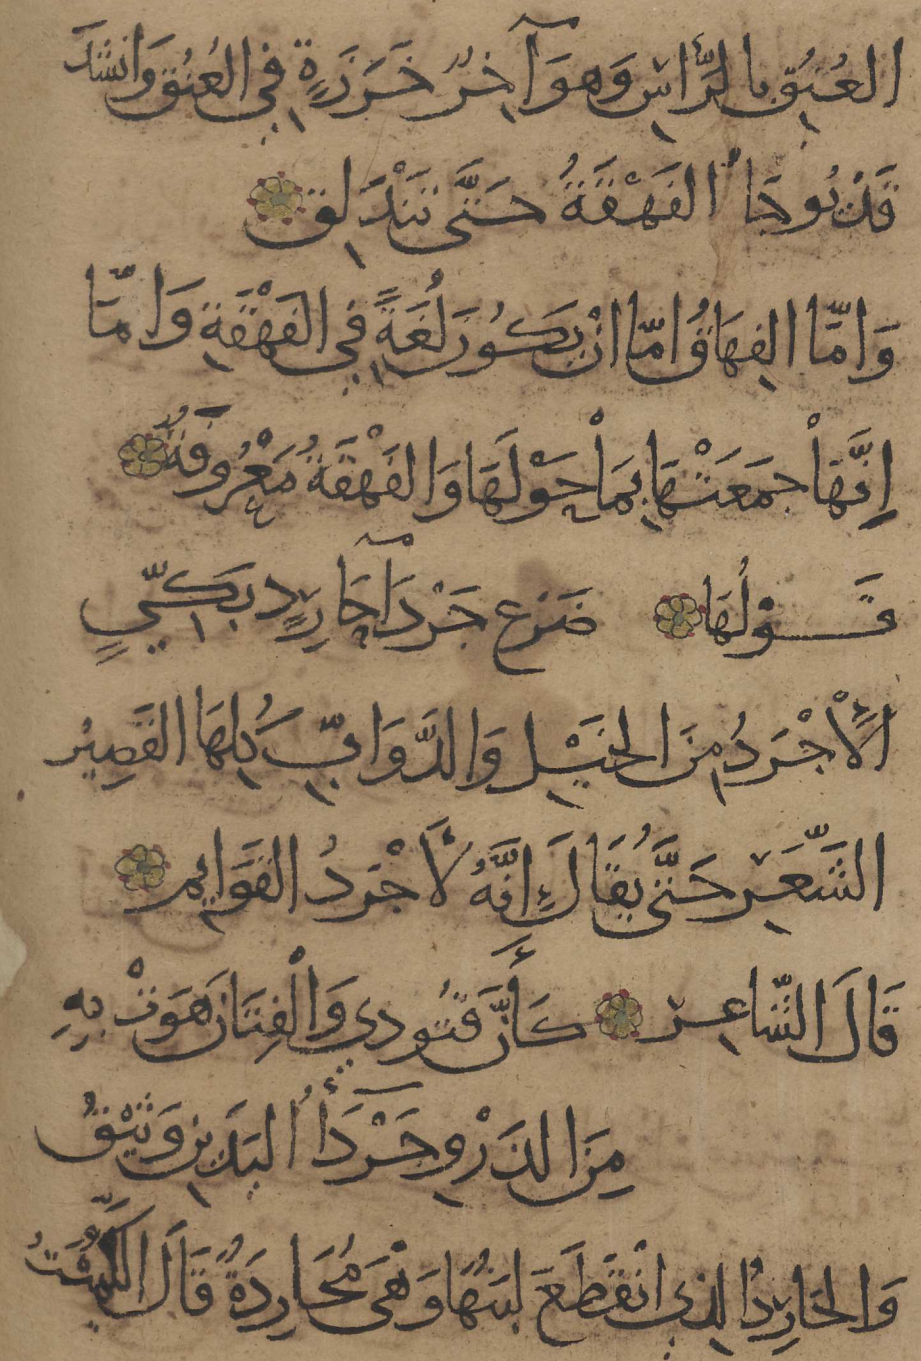 العُنُقِ بالرَّاسِ وَهوَ آخِرُ خَرَزَةٍ فِي العُنُقِ وَانشَدَ
قَدْ يُوجَأُ الفَهْقَةُ حَتَّى تَنْدَلِق
وَامَّا الفِهَاقُ امّا انْ يَكُونَ لُغَةً فِي الفَهْقَةِ وَامَّا
اِنَّهَا جمَعَتْهَا بِمَا حَوْلَهَا وَالفَهْقَةُ مَعْرُوفَةٌ
قَوْلُهَا ضَرْع جَرْدَآ حَارِدٍ بَكِيٍّ
الأَجْرَدُ مِنَ الخَيْلِ وَالدَّوَابِّ كُلِهَا القَصِيرُ
الشَّعَرِ حَتَّى يُقَالَ اِنَّهُ لأَجْرَدُ القَوَايِمِ
قَالَ الشّاعِر كَأَنَّ قُتُودِي وَالْفِتَانَ هَوَتْ بِهِ
مِنَ الذَرْوِ جَرْدَأُ اليَدَينِ وَثِيْقُ
وَالحَارِدُ الذِي انْقَطَعَ لبَنُهَا وَهْىَ مُحَارِدَةٌ قَالَ الكُمَيْتُ